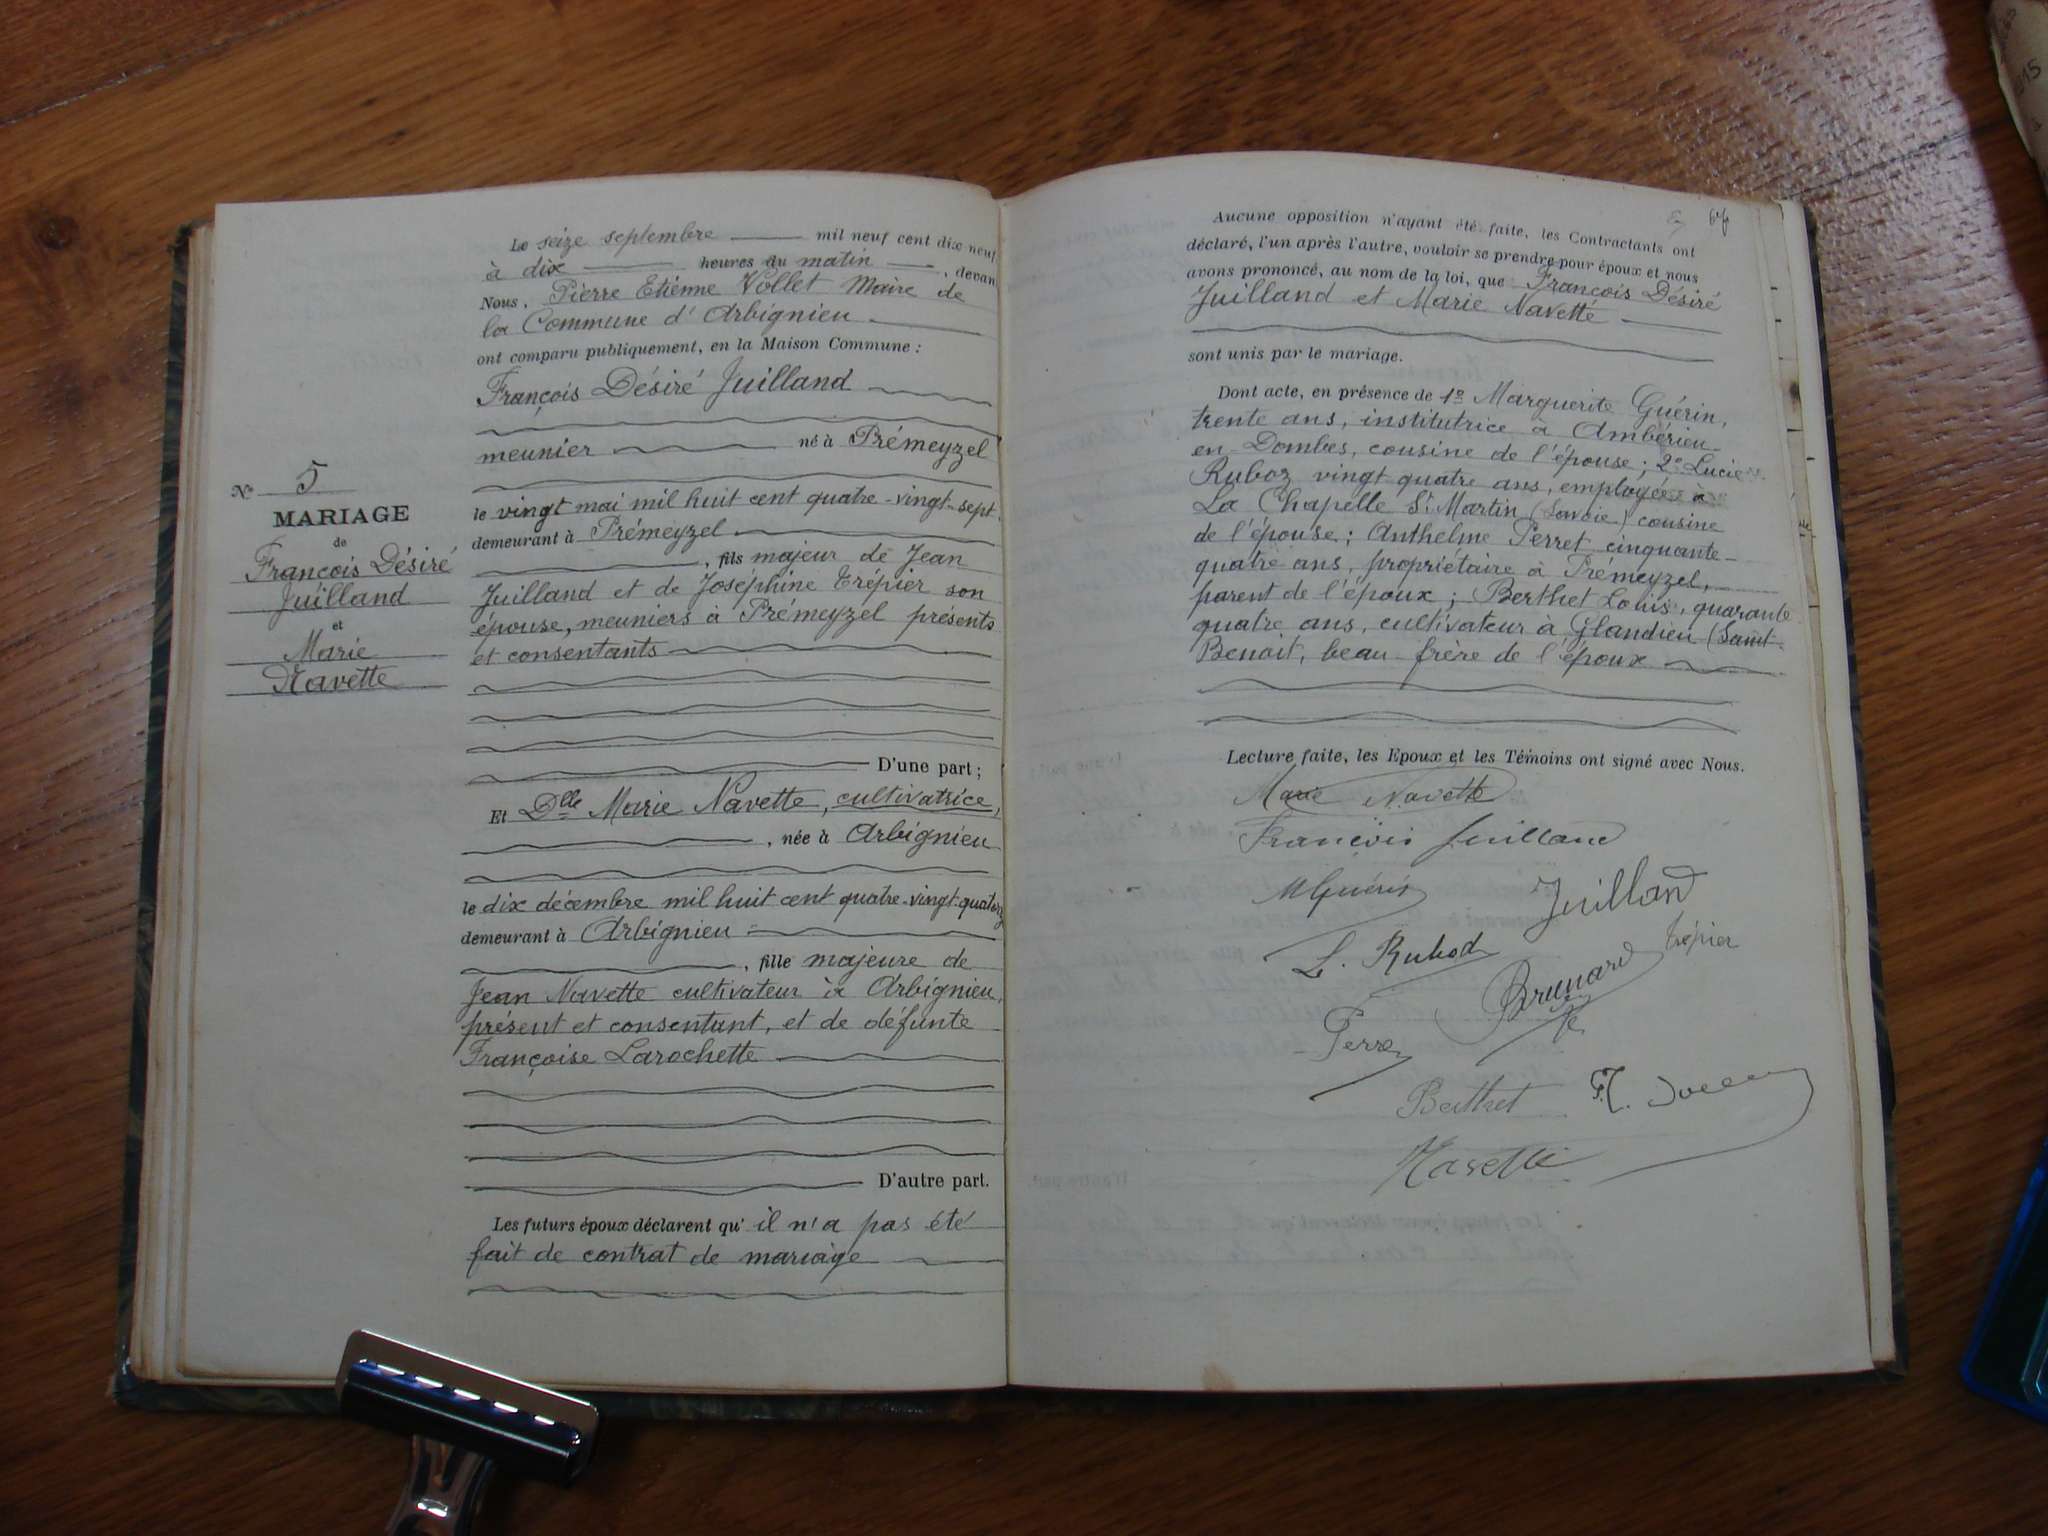 Le seize septembre mil neuf cent dix neuf
à dix heures du matin, devan
Nous, Pierre Etienne Vollet Maire de
la Commune d'Arbignieu
ont comparu publiquement, en la Maison Commune :
François Désiré Juilland
meunier né à Prémeyzel
le vingt mai mil huit cent quatre-vingt-sept
demeurant à Prémeyzel
, fils majeur de Jean
Juilland et de Joséphine Trépier son
épouse, meuniers à Prémeyzel présents
et consentants
D'une part ;
Et Dlle Marie Navette, cultivatrice,
, née à Arbignieu
le dix décembre mil huit cent quatre-vingt-quatorz
demeurant à Arbignieu
, fille majeure de
Jean Navette cultivateur à Arbignieu,
présent et consentant, et de défunte
Françoise Larochette
D'autre part.
Les futurs époux déclarent qu'il n'a pas été
fait de contrat de mariage
N° 5
MARIAGE
de
François Désiré
Juilland
et
Marie
Navette
Aucune opposition n'ayant été faite, les Contractants ont
déclaré, l'un après l'autre, vouloir se prendre pour époux et nous
avons prononcé, au nom de la loi, que François Désiré
Juilland et Marie Navette
sont unis par le mariage.
Dont acte, en présence de 1° Marguerite Guérin,
trente ans, institutrice à Ambérieu
en-Dombes, cousine de l'épouse ; 2° Lucie
Ruboz vingt quatre ans, employée à
La Chapelle St Martin (Savoie) cousine
de l'épouse ; Anthelme Perret cinquante-
quatre ans, propriétaire à Prémeyzel,
parent de l'époux ; Berthet Louis, quarante
quatre ans, cultivateur à Glandieu (Saint-
Benoit, beau-frère de l'époux
Lecture faite, les Epoux et les Témoins ont signé avec Nous.
Marie Navette
François Juilland
M Guérin
Juilland
L. Rubod
trépier
Brunard
Perret
Berthet
Navette